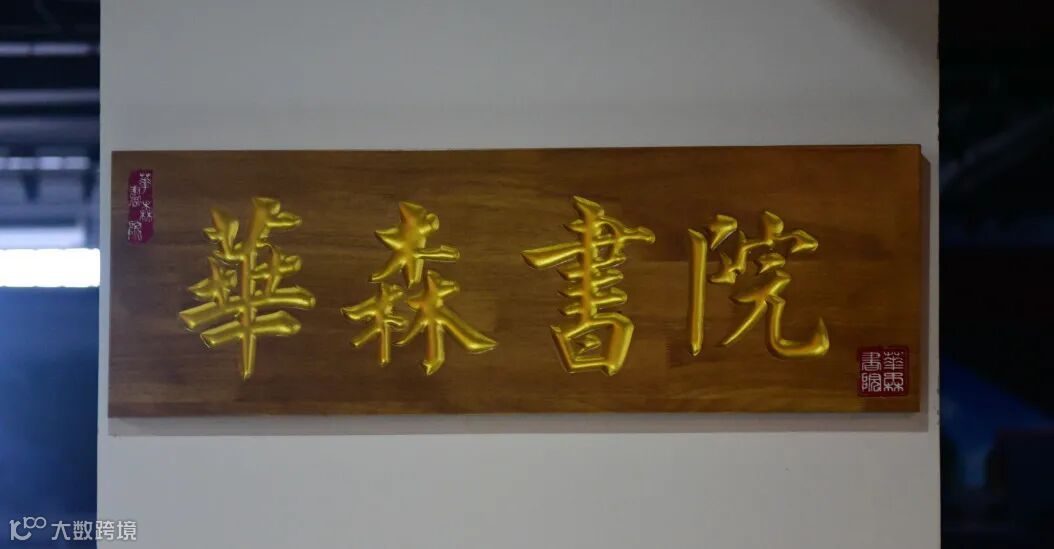 華森書院
華森書院
華森書院
大数跨境